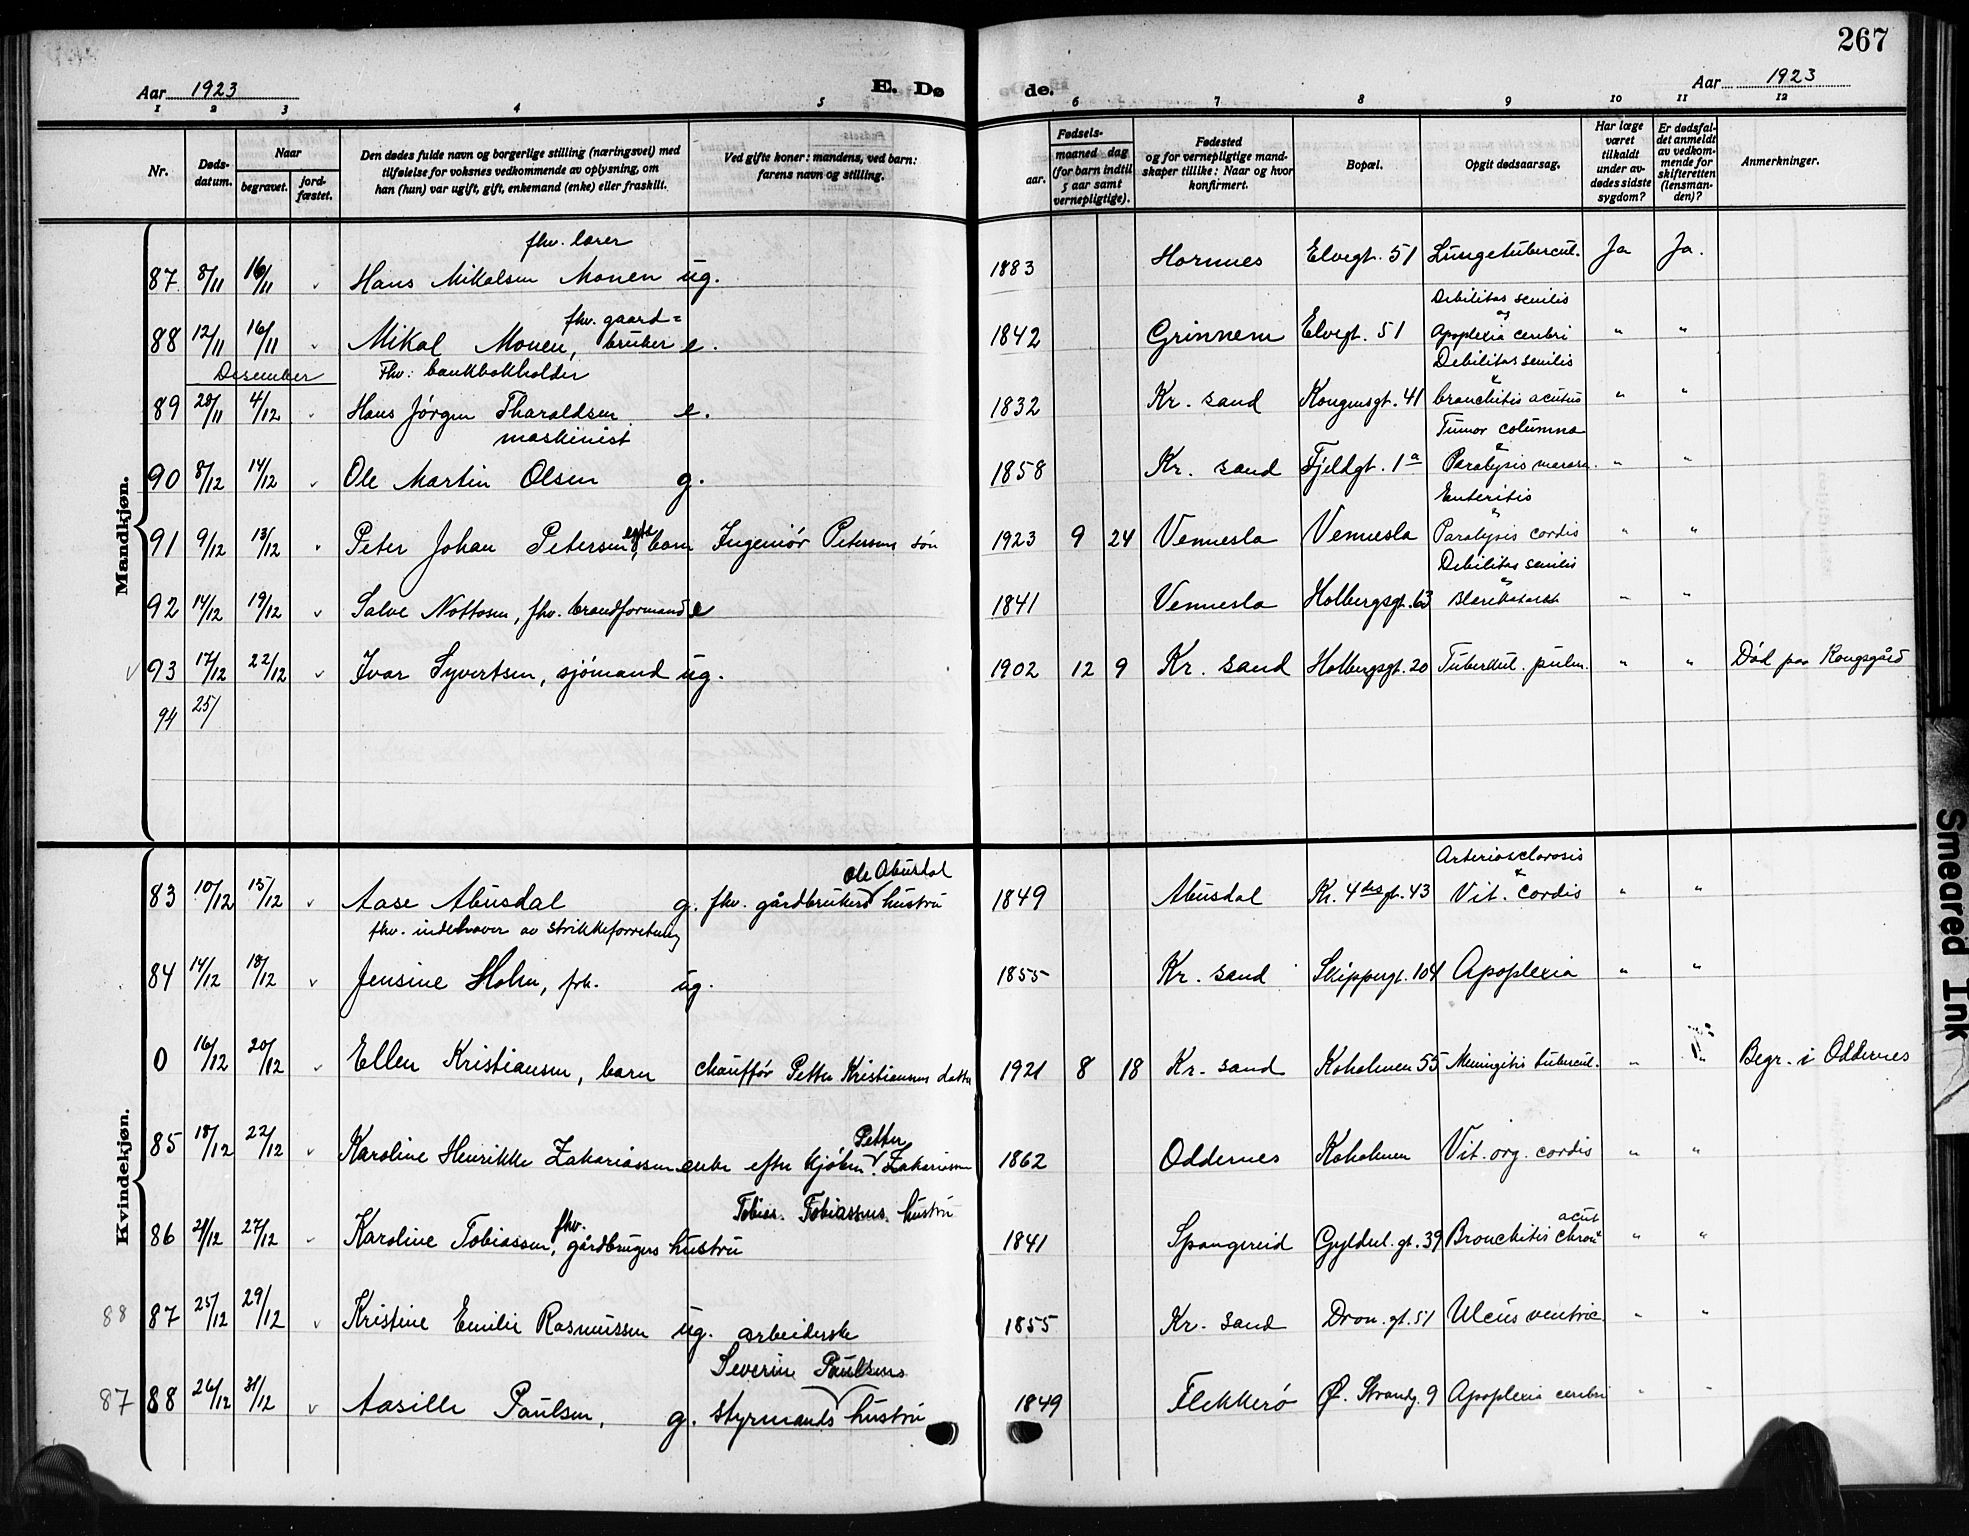 267
Aar 1923 E. Dø de. Aar 1923
1 2 3 4 5 6 7 8 9 10 11 12
Nr.
Døds-
datum.
Naar
begravet.
jord-
fæstet.
Den dødes fulde navn og borgerlige stilling (næringsvei) med
tilføielse for voksnes vedkommende av oplysning, om
han (hun) var ugift, gift, enkemand (enke) eller fraskilt.
Ved gifte koner: mandens, ved barn:
farens navn og stilling.
Fødsels-
aar. maaned dag
(for barn indtil
5 aar samt
vernepligtige).
Fødested
og for vernepligtige mand-
skaper tillike: Naar og hvor
konfirmert.
Bopæl.
Opgit dødsaarsag.
Har læge
været
tilkaldt
under av-
dødes sidste
sygdom?
Er dødsfal-
det anmeldt
av vedkom-
mende for
skifteretten
(lensman-
den)?
Anmerkninger.
Mandkjøn.
fhv. lærer
87 8/11 16/11 Hans Mikalsen Monen ug. 1883 Hornnes Elvegt. 51 Lungetubercul. Ja Ja.
fhv. gaard= Debilitas senilis
og
88 12/11 16/11 Mikal Monen, bruker e. 1842 Grinnem Elvegt. 51 Apoplexia cerebri " "
Desember Fhv: bankbokholder Debilitas senilis
&
89 28/11 4/12 Hans Jórgen Tharaldsen e. 1832 Kr. sand Kongensgt. 41 bronchitis acutus " "
maskinist Tumor columna
&
90 8/12 14/12 Ole Martin Olsen g. 1858 Kr. sand Fjeldgt. 1a Paralysis " "
Enteritis
&
91 9/12 13/12 Peter Johan Petersen, egte barn Ingeniór Petersens són 1923 9 24 Vennesla Vennesla Paralysis cordis " "
Debilitas senilis
&
92 14/12 19/12 Salve Nottosen, fhv. brandformand e 1841 Vennesla Holbergsgt. 63 Blærekatarrh " "
93 17/12 22/12 Ivar Syvertsen, sjómand ug. 1902 12 9 Kr. sand Holbergsgt. 20 Tuberkul. pulm. " " Död paa Kongsgård
94 25/
Kvindekjøn.
Ole Abusdal Arteriosclerosis
&
83 10/12 15/12 Aase Abusdal g. fhv. gårdbrukers hustru 1849 Abusdal Kr. 4des gt. 43 Vit. cordis " "
fhv. indehaver av strikkeforretning
84 14/12 18/12 Jensine Holm, frk. ug. 1855 Kr. sand Skippergt. 104 Apoplexia " "
0 16/12 20/12 Ellen Kristiansen, barn chauffór Petter Kristiansens datter 1921 8 18 Kr. sand Koholmen 55 Meningitis tubercul. " " Begr. i Oddernes
Petter
85 18/12 22/12 Karoline Henrikke Zakariassen enke efter kjöbm. Zakariassen 1862 Oddernes Koholmen Vit. org. cordis " "
Tobias Tobiassens hustru
fhv. acut
86 21/12 27/12 Karoline Tobiassen, gårdbrugers hustru 1841 Spangereid Gyldenl. gt. 39 Bronchitis chron " "
88 87 25/12 29/12 Kristine Emilie Rasmussen ug. arbeiderske 1855 Kr. sand Dron. gt. 51 Ulcus ventric. " "
Severin Paulsens
87 88 26/12 31/12 Aasille Paulsen, g. styrmands hustru 1849 Flekkeró Ø. Strandg. 9 Apoplexia cerebri " "
Smeared Ink